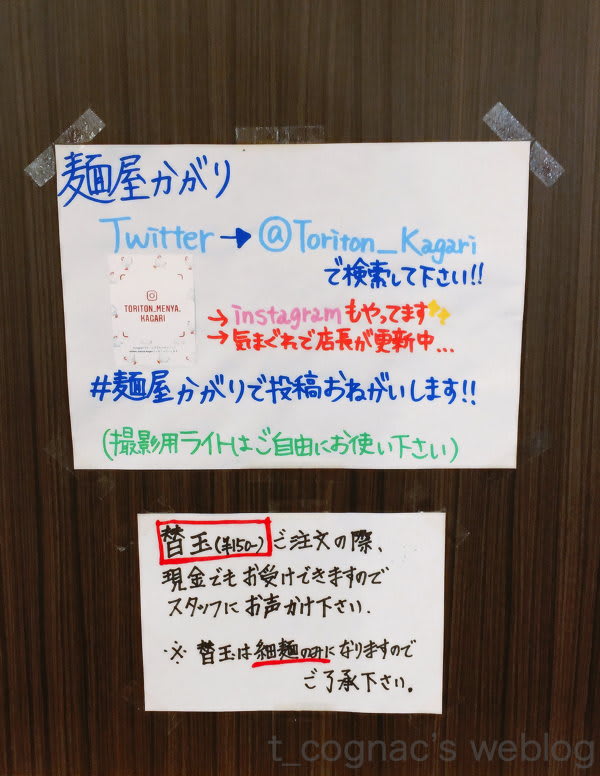 麺屋かがり
Twitter → @Toriton_Kagari
で検索して下さい!!
TORITON_MENYA.
KAGARI
→ instagramもやってます
→ 気まぐれで店長が更新中...
#麺屋かがりで投稿おねがいします!!
(撮影用ライトはご自由にお使い下さい)
替玉(¥150-)ご注文の際、
現金でもお受けできますので
スタッフにお声かけ下さい.
※ 替玉は細麺のみになりますので
ご了承下さい。
t_cognac's weblog